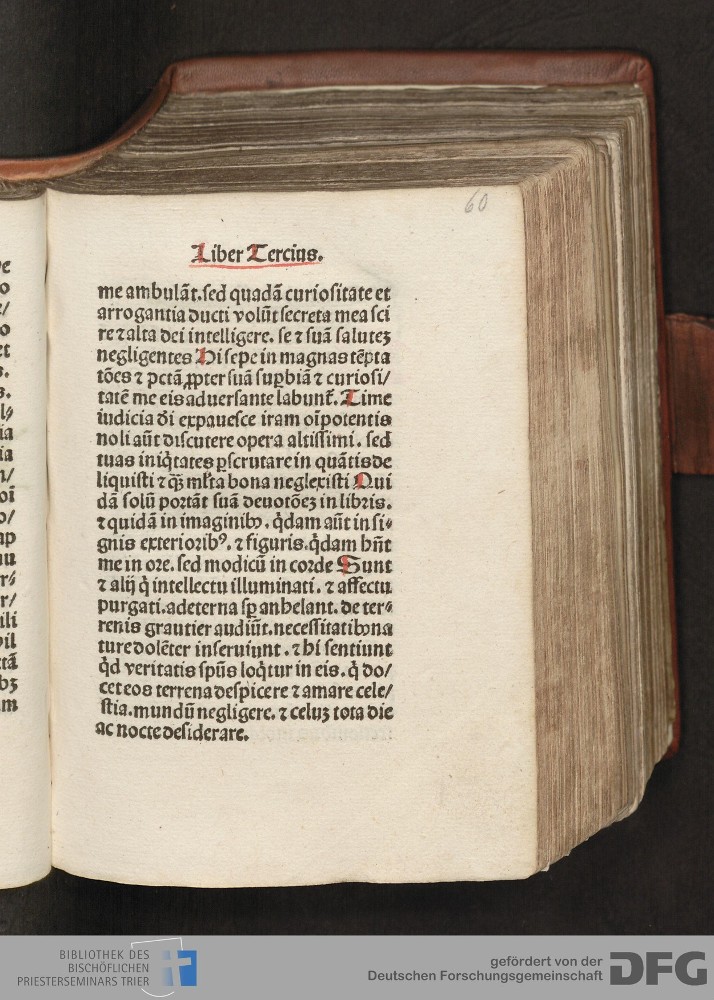 60
Liber Tercius.
me ambulāt. sed quadā curiositate et
arrogantia ducti volūt secreta mea sci
re ⁊ alta dei intelligere. se ⁊ suā salutez
negligentes Hi sepe in magnas tēpta
tōes ⁊ pctā ꝓpter suā suꝑbiā ⁊ curiosi/
tatē me eis aduersante labunt᷑. Time
iudicia dī expauesce iram oīpotentis
noli aūt discutere opera altissimi. sed
tuas iniq̇tates ꝑscrutare in quātis de
liquisti ⁊ qȝ̄ ml̓ta bona neglexisti Qui
dā solū portāt suā deuotōeȝ in libris.
⁊ quidā in imaginibꝫ. q̇dam aūt in si⸗
gnis exteriorib⁹. ⁊ figuris. q̇dam hn̄t
me in ore. sed modicū in corde Sunt
⁊ alij q̇ intellectu illuminati. ⁊ affectu
purgati. ad eterna sꝑ anhelant. de ter⸗
renis grauiter audiūt. necessitatibꝫ na
ture dolēter inseruiunt. ⁊ hi sentiunt
q̇d veritatis spūs loq̇tur in eis. q̇ do/
cet eos terrena despicere ⁊ amare cele/
stia. mundū negligere. ⁊ celuȝ tota die
ac nocte desiderare.
BIBLIOTHEK DES
BISCHÖFLICHEN
PRIESTERSEMINARS TRIER
gefördert von der
Deutschen Forschungsgemeinschaft
DFG